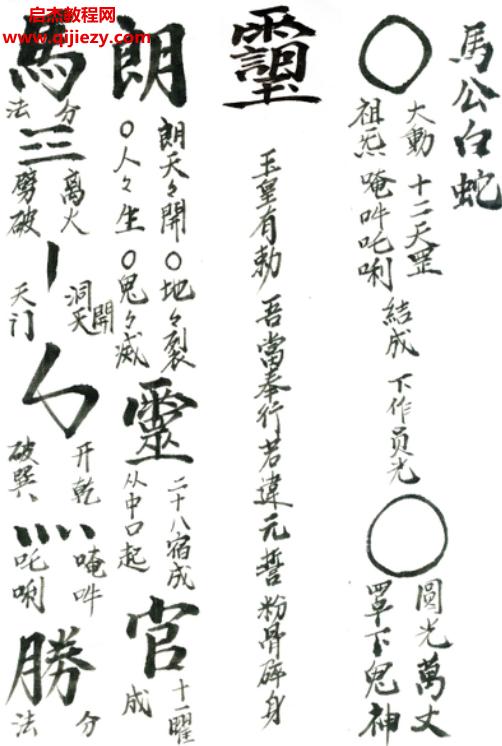 启杰教程网
www.qijiezy.com
馬公白蛇
〇
大動 十二天罡
祖炁 唵吽吒唎 結成 下作员光
〇
圓光萬丈
罩下鬼神
玉皇有勅 吾當奉行若違元誓粉骨碎身
朗
朗天々開 〇地々裂
〇人々生 〇鬼々滅
靈
二十八宿成
从中口起
官
十一曜
成
馬
分
法
三
离火
劈破
丨
洞天開
天门
开乾
破巽
灬
唵吽
吒唎
勝
分
法